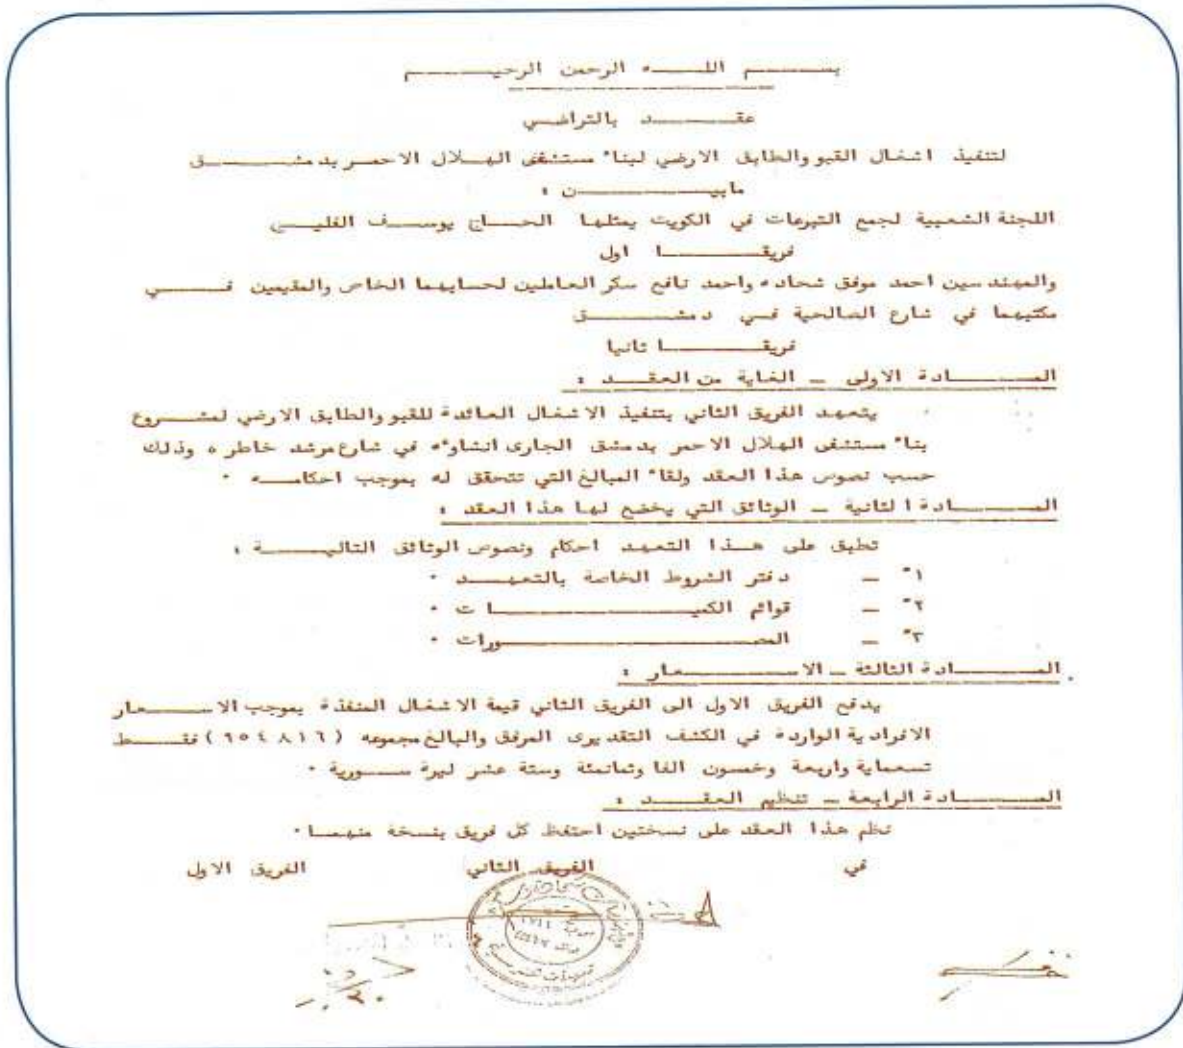 بسم اللـه الرحمن الرحيم
عقد بالتراضي
لتنفيذ اشغال القبو والطابق الارضي لبناء مستشفى الهلال الاحمر بدمشق
مابين :
اللجنة الشعبية لجمع التبرعات في الكويت يمثلها الحاج يوسف الفليج
فريقا اول
والمهندسين احمد موفق شحاده واحمد نافع سكر العاملين لحسابهما الخاص والمقيمين في
مكتبهما في شارع الصالحية في دمشق
فريقا ثانيا
المادة الاولى - الغاية من العقد :
يتعهد الفريق الثاني بتنفيذ الاشغال العائدة للقبو والطابق الارضي لمشروع
بناء مستشفى الهلال الاحمر بدمشق الجارى انشاوءه في شارع مرشد خاطر ، وذلك
حسب نصوص هذا العقد ولقاء المبالغ التي تتحقق له بموجب احكامه .
المادة الثانية - الوثائق التي يخضع لها هذا العقد :
تطبق على هذا التعهد احكام ونصوص الوثائق التالية :
١ً - دفتر الشروط الخاصة بالتعهد .
٢ً - قوائم الكميات .
٣ً - المصورات .
المادة الثالثة - الاسعار :
يدفع الفريق الاول الى الفريق الثاني قيمة الاشغال المنفذة بموجب الاسعار
الافرادية الواردة في الكشف التقديرى المرفق والبالغ مجموعه (٩٥٤٨١٦) فقط
تسعماية واربعة وخمسون الفا وثمانمئة وستة عشر ليرة سورية .
المادة الرابعة - تنظيم العقد :
نظم هذا العقد على نسختين احتفظ كل فريق بنسخة منهما .
في الفريق الثاني الفريق الاول